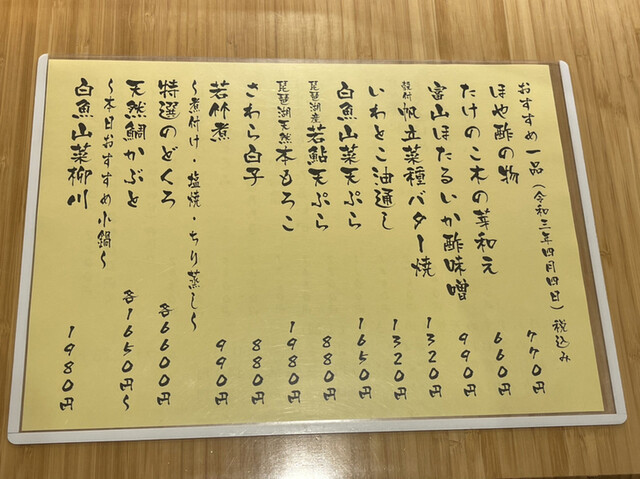 おすすめ一品(令和三年四月四日) 税込み
ほや酢の物 770円
たけのこ木の芽和え 660円
富山ほたるいか酢味噌 990円
殻付帆立菜種バター焼 1320円
いわとこ油通し 1320円
白魚山菜天ぷら 1650円
琵琶湖産若鮎天ぷら 880円
琵琶湖天然本もろこ 1980円
さわら白子 880円
若竹煮 990円
〜煮付け・塩焼・ちり蒸し〜
特選のどくろ 各6600円
天然鯛かぶと 各1650円〜
〜本日おすすめ小鍋〜
白魚山菜柳川 1980円